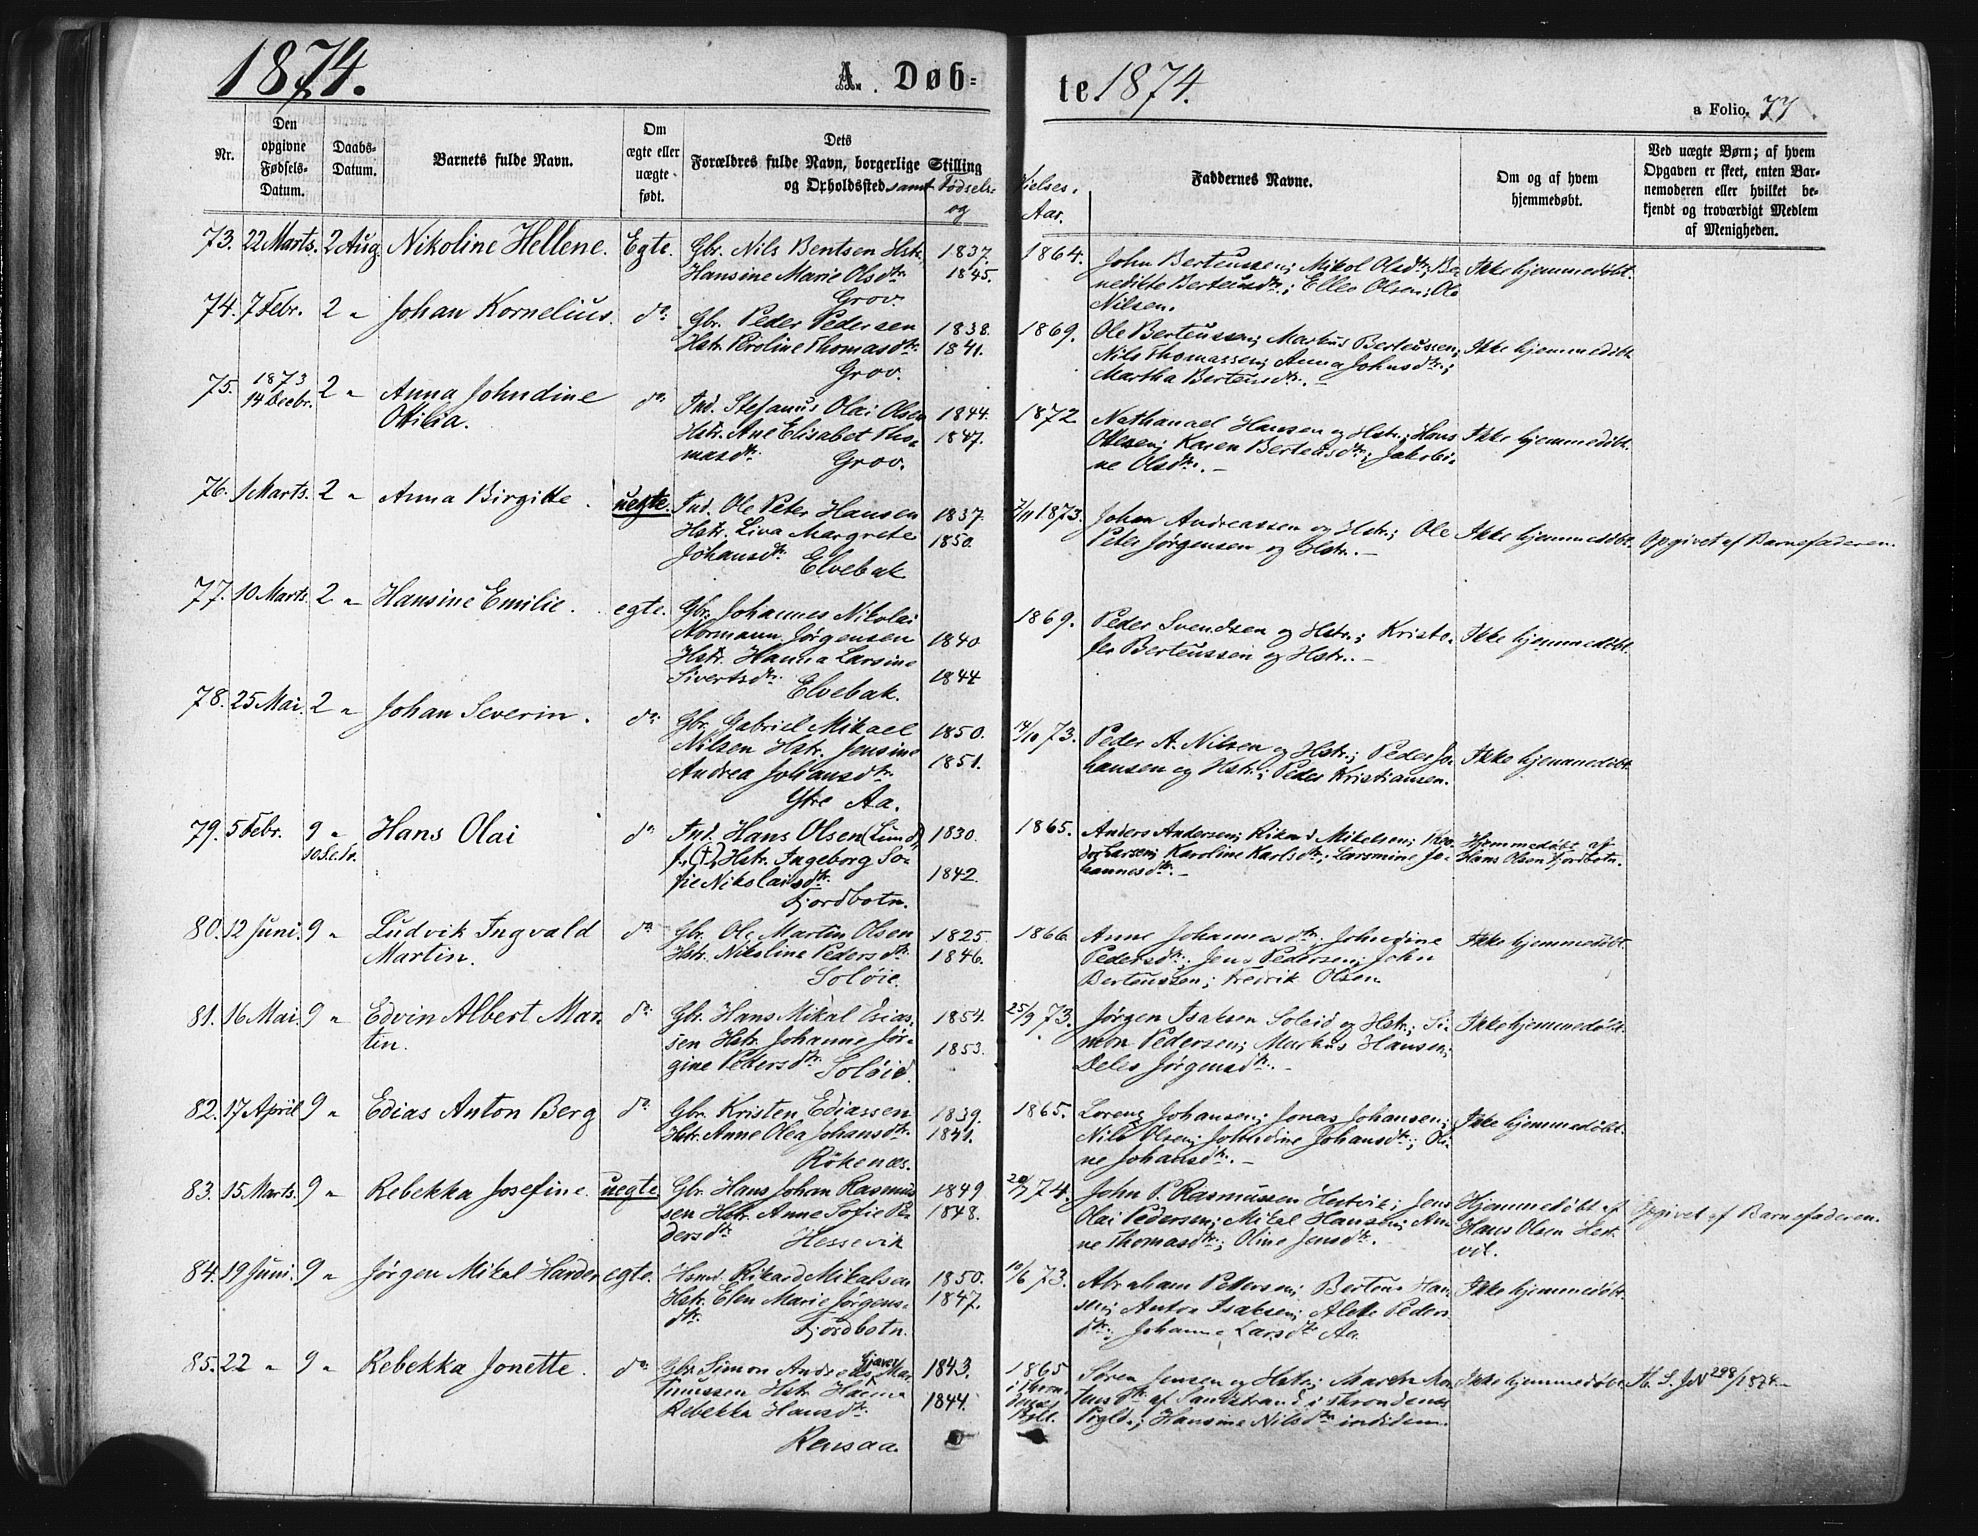 1874.
A. Døb-
te 1874.
a Folio, 77.
Nr.
Den opgivne Fødsels-Datum.
Daabs-Datum.
Barnets fulde Navn.
Om ægte eller uægte født.
Dets Forældres fulde Navn, borgerlige Stilling og Opholdssted samt Fødsels- og
Vielses-Aar.
Faddernes Navne.
Om og af hvem hjemmedøbt.
Ved uægte Børn; af hvem Opgaven er skeet, enten Barnemoderen eller hvilket bekjendt og troværdigt Medlem af Menigheden.
73. 22 Marts. 2 Aug Nikoline Hellene. Egte. Gbr. Nils Bentsen Hstr. 1837.
Hansine Marie Olsdtr. 1845.
Grov.
1864. John Berteussen; Mikol Olsdtr; Be-
nedikte Berteusdtr.; Ellef Olsen; Ole
Nilsen.
Ikke hjemmedøbt.
74. 7 Febr. 2 " Johan Kornelius. do. Gbr. Peder Pedersen 1838.
Hstr. Peroline Thomasdtr. 1841.
Grov.
1869. Ole Berteussen; Markus Berteussen;
Nils Thomassen; Anna Johnsdtr.;
Martha Berteusdtr. -
Ikke hjemmedøbt
75. 1873 14 Decbr. 2 " Anna Johndine
Ottilia.
do. Ind. Stefanus Olai Olsen 1844.
Hstr. Ane Elisabet Tho- 1847.
masdtr. Grov.
1872 Nathanael Hansen og Hstr.; Hans
Ottesen; Karen Berteusdtr.; Jakobi-
ne Olsdtr. -
Ikke hjemmedøbt.
76. 1 Marts. 2 " Anna Birgitte. uegte. Ind. Ole Peter Hansen 1837.
Hstr. Lina Margrete 1850.
Johansdtr. Elvebak
7/11 1873. Johan Andreassen og Hstr.; Ole
Peter Jørgensen og Hstr. -
Ikke hjemmedøbt. Opgivet af Barnefaderen.
77. 10 Marts. 2 " Hansine Emilie. egte. Gbr. Johannes Nikolai
Normann Jørgensen 1840.
Hstr. Hanna Larsine
Sivertsdtr. 1844
Elvebak.
1869. Peder Svendsen og Hstr.; Kristo-
fer Berteussen og Hstr. -
Ikke hjemmedøbt.
78. 25 Mai. 2 " Johan Severin. do. Gbr. Gabriel Mikael 1850.
Nilsen Hstr. Jensine
Andrea Johansdtr. 1851.
Ytre Aa.
14/10 73. Peder A. Nilsen og Hstr.; Peder Jo-
hansen og Hstr.; Peder Kristiansen.
Ikke hjemmedøbt.
79. 5 Febr. 9 " Hans Olai do. Ind. Hans Olsen (Lund) 1830.
f. (†), Hstr. Ingeborg So-
fie Nikolaisdtr. 1842.
Fjordbotn.
1865. Anders Andersen; Rikard Mikelsen;
Larsen; Karoline Karlsdtr.; Larsmine Jo-
hannesdtr. -
Hjemmedøbt af
Hans Olsen Fjordbotn.
80. 12 Juni. 9 " Ludvik Ingvald
Martin.
do. Gbr. Ole Martin Olsen 1825.
Hstr. Nikoline Pedersdtr. 1846.
Soløie.
1866 Anne Johannesdtr. Johndine
Pedersdtr.; Jens Pedersen; John
Berteussen; Fredrik Olsen.
Ikke hjemmedøbt
81. 16 Mai. 9 " Edvin Albert Mar-
tin.
do. Gbr. Hans Mikal Esias- 1854.
sen Hstr. Johanne Jør- 1853.
gine Petersdtr. Soløie.
25/9 73. Jørgen Isaksen Soleid og Hstr.; Si-
mon Pedersen; Markus Hansen;
Deles Jørgensdtr. -
Ikke hjemmedøbt.
82. 17 April 9 " Edias Anton Berg do. Gbr. Kristen Ediassen 1839.
Hstr. Anne Olea Johansdtr. 1841.
Rökenæs.
1865. Loreng Johansen; Jonas Johansen;
Nils Olsen; Johndine Johansdtr.; Oli-
ne Johansdtr. -
Ikke hjemmedøbt.
83. 15 Marts. 9 " Rebekka Josefine. uegte. Gbr. Hans Johan Rasmus- 1849.
sen Hstr. Anne Sofie Pe- 1848.
dersdtr. Hessevik
20/7 74. John P. Rasmussen Hestvik; Jens
Olai Pedersen; Mikal Hansen; An-
ne Thomasdtr.; Oline Jensdtr.
Hjemmedøbt af
Hans Olsen Hest-
vik.
Opgivet af Barnefaderen.
84. 19 Juni. 9 " Jørgen Mikal Harder egte. Hsmd. Rikard Mikalsen 1850.
Hstr. Elen Marie Jørgens- 1847.
dtr. Fjordbotn.
10/6 73. Abraham Pettersen; Berteus Han-
sen; Anton Isaksen; Alette Peders-
dtr. Johanne Larsdtr Aa.
Ikke hjemmedøbt.
85. 22 " 9 " Rebekka Jonette. do. Gbr. Simon Andreas Gjæver Mar- 1843.
tinussen Hstr. Hanna 1844.
Rebekka Hansdtr.
Rensaa.
1865 i Thron-
denes
Pgld.
Søren Jensen og Hstr.;
af Sandstrand i Throndenes
Prgld.; Hansine Nilsdtr. indidem.
Ikke hjemmedøbt. 298/1874